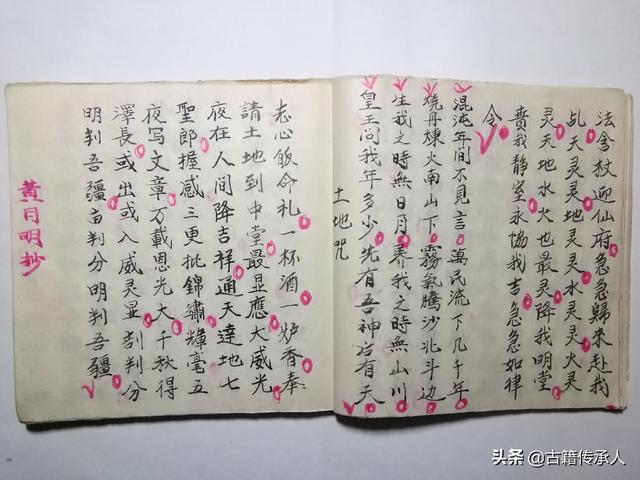 法舍杖迎仙府急急歸來赴我
乩天灵灵地灵灵水灵灵火灵
灵天地水火也最灵降我明堂
賚我靜室永協我吉急急如律
令
混沌年间不見言萬民流下几千年
燒丹煉火南山下霧氣騰沙北斗边
生我之時無日月養我之時無山川
皇王问我年多少先有吾神后有天
土地咒
志心皈命礼一杯酒一炉香奉
請土地到中堂最显應大威光
夜在人间降吉祥通天達地七
聖郎握感三更批錦繡輝毫五
夜写文章万載恩光大千秋得
澤長或出或入威灵显刮判分
明判吾疆亩判分明判吾疆
黄月明抄
头条 @古籍传承人